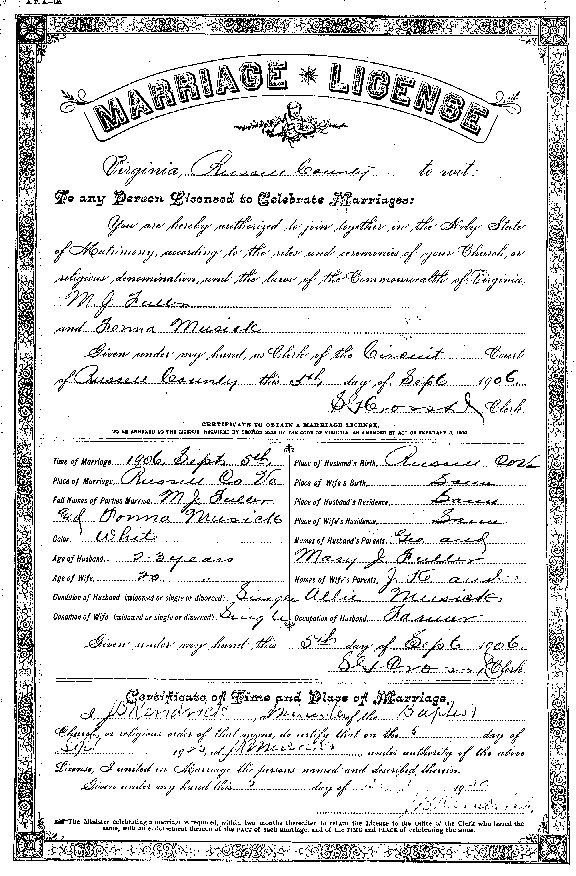 MARRIAGE LICENSE
Virginia, Russell County to wit:
To any Person Licensed to Celebrate Marriages:
You are hereby authorized to join together in the Holy State
of Matrimony, according to the rites and ceremonies of your Church, or
religious denomination, and the laws of the Commonwealth of Virginia,
M. J. Fuller
and Donna Musick
Given under my hand, as Clerk of the Circuit Court
of Russell County this 5th, day of Sept 1906.
Clerk.
CERTIFICATE TO OBTAIN A MARRIAGE LICENSE,
Time of Marriage, 1906, Sept. 5th,
Place of Marriage, Russell Co Va
Full Names of Parties Married, M. J. Fuller
and Donna Musick
Color, White
Age of Husband, 23 years
Age of Wife, 20 "
Condition of Husband (widowed or single or divorced) Single
Condition of Wife (widowed or single or divorced) Single
Place of Husband's Birth, Russell Co Va
Place of Wife's Birth, Same
Place of Husband's Residence, Same
Place of Wife's Residence, Same
Names of Husband's Parents, Geo and
Mary J. Fuller
Names of Wife's Parents, J. H. and
Allie Musick,
Occupation of Husband, Farmer
Given under my hand this 5th day of Sept 1906.
Clerk.
Certificate of Time and Place of Marriage.
I, J B Kendrick, Minister of the Baptist
Church, or religious order of that name, do certify that on the 5 day of
Sept 19 at Musick's, under authority of the above
License, I united in Marriage the persons named and described therein.
Given under my hand this day of 19
The Minister celebrating a marriage is required, within two months thereafter to return the License to the Office of the Clerk who issued the
same, with an endorsement thereon of the FACT of such marriage, and of the TIME and PLACE of celebrating the same.